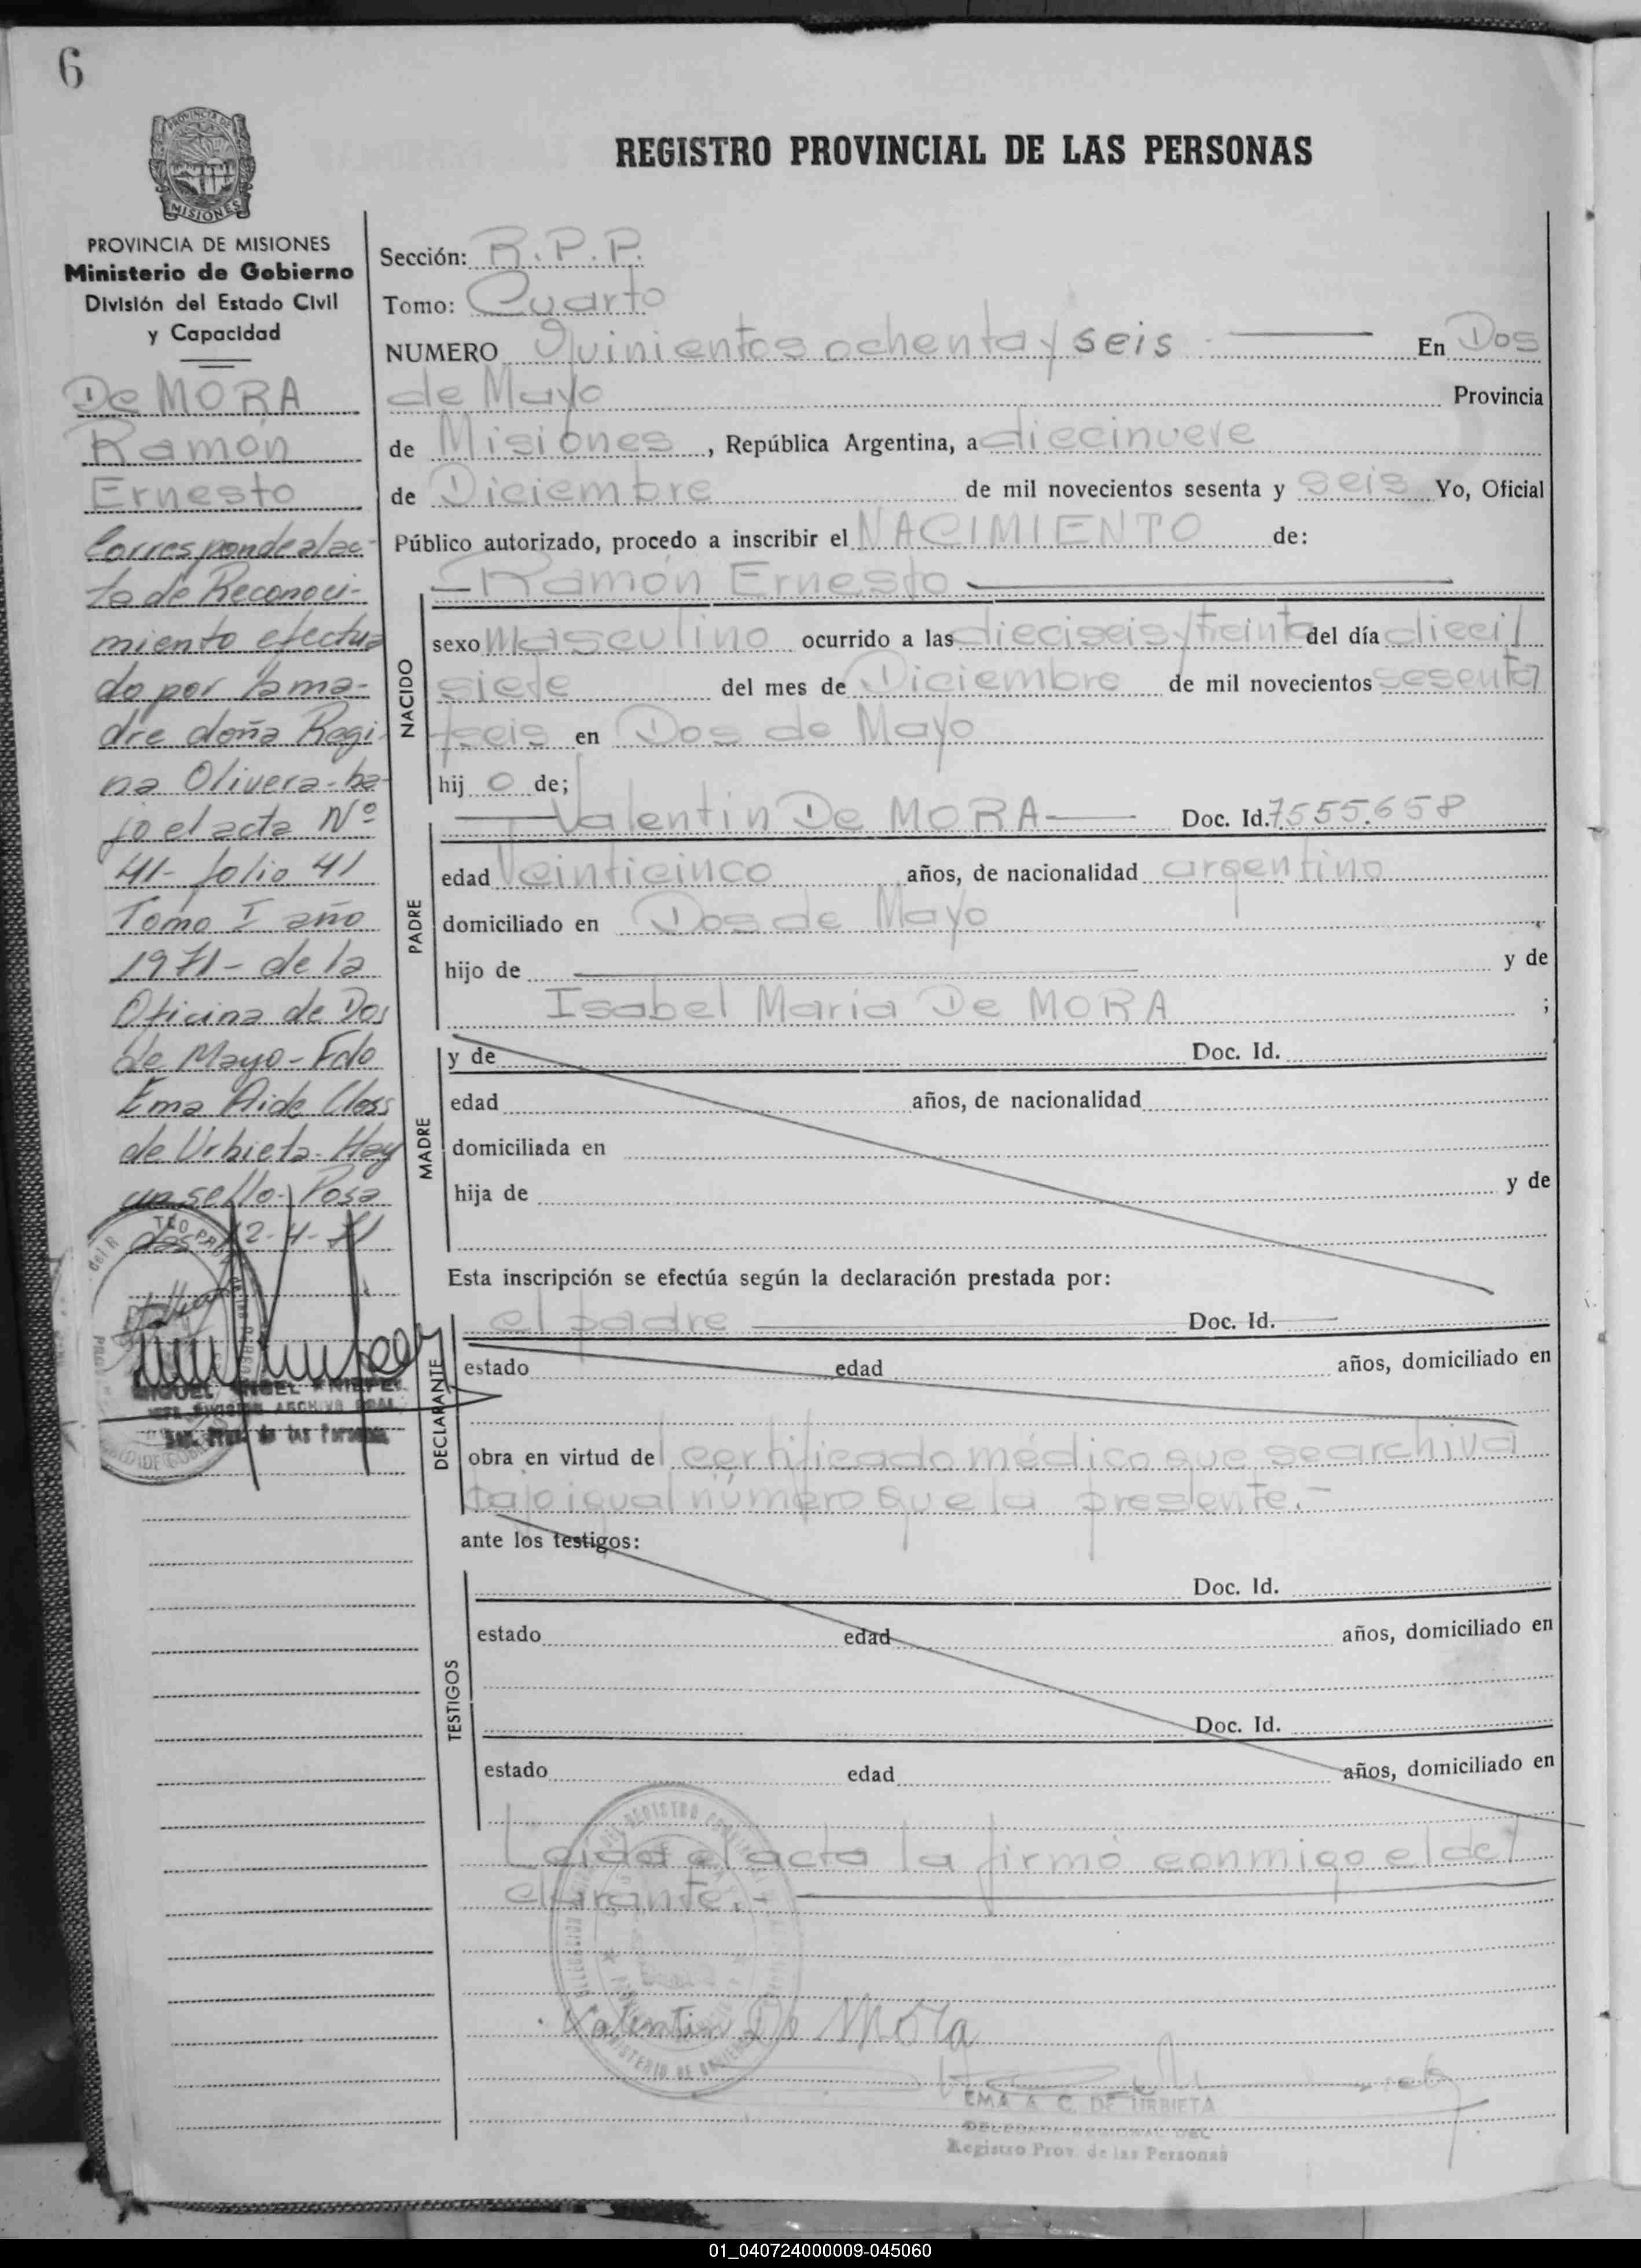 6
PROVINCIA DE
MISIONES
REGISTRO PROVINCIAL DE LAS PERSONAS
PROVINCIA DE MISIONES
Ministerio de Gobierno
División del Estado Civil
y Capacidad
De MORA
Ramón
Ernesto
Corresponde al ac-
ta de Reconoci-
miento efectua
do por la ma-
dre doña Regi-
na Olivera - ba-
jo el acta Nº
41 - folio 41
Tomo I año
1971 - de la
Oficina de Dos
de Mayo - Fdo
Ema Aide Closs
de Urbieta - Hay
un sello - Posa
das 12-4-71
MIGUEL ANGEL
JEFE DIVISION ARCHIVO GRAL.
Reg. Prov. de las Personas
Sección: R.P.P.
Tomo: Cuarto
NUMERO Quinientos ochenta y seis En Dos
de Mayo Provincia
de Misiones, República Argentina, a diecinueve
de Diciembre de mil novecientos sesenta y seis Yo, Oficial
Público autorizado, procedo a inscribir el NACIMIENTO de:
Ramón Ernesto
NACIDO
sexo masculino ocurrido a las dieciseis y treinta del día dieci/
siete del mes de Diciembre de mil novecientos sesenta
y seis en Dos de Mayo
hij o de;
PADRE
Valentin De MORA Doc. Id. 7.555.658
edad Veinticinco años, de nacionalidad argentino
domiciliado en Dos de Mayo
hijo de y de
Isabel Maria De MORA ;
MADRE
y de Doc. Id.
edad años, de nacionalidad
domiciliada en
hija de y de
Esta inscripción se efectúa según la declaración prestada por:
DECLARANTE
el padre Doc. Id.
estado edad años, domiciliado en
obra en virtud de certificado médico que se archiva
bajo igual número que la presente.-
ante los testigos:
TESTIGOS
Doc. Id.
estado edad años, domiciliado en
Doc. Id.
estado edad años, domiciliado en
Leida el acta la firmó conmigo el de/
clarante.-
Valentin De Mora
EMA A. C. DE URBIETA
Registro Prov. de las Personas
01_040724000009-045060